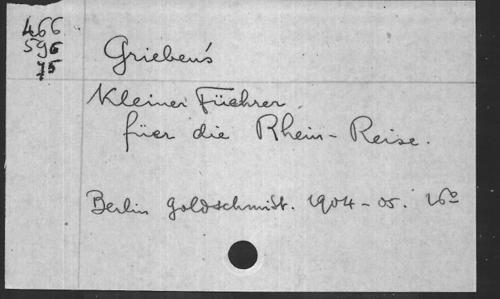 466
596
75
Grieben's
Kleiner Füehrer
füer die Rhein-Reise.
Berlin Goldschmidt. 1904-05. 16º